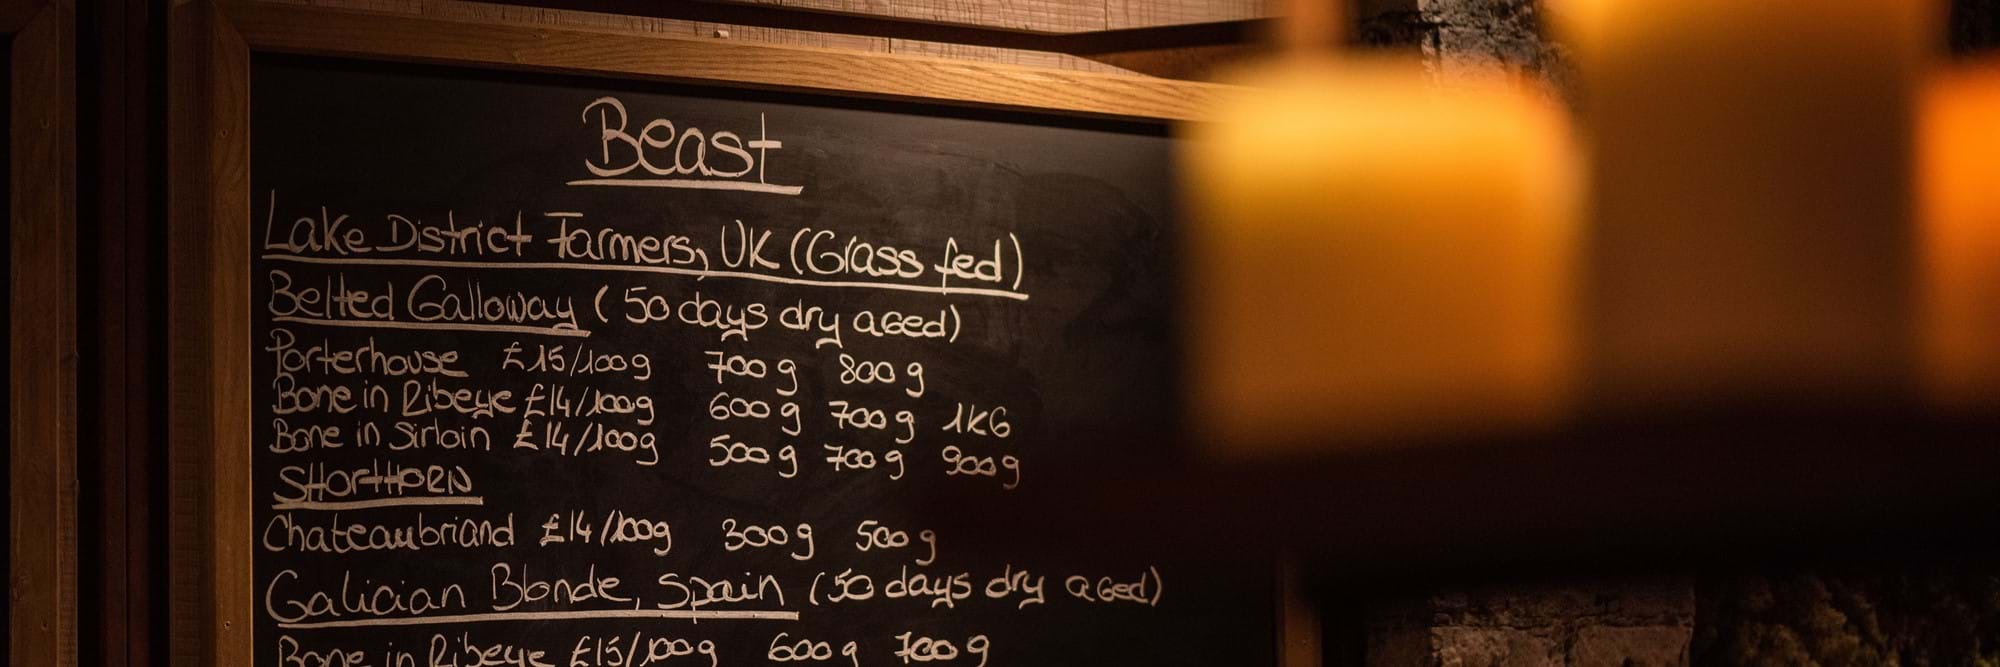 Beast
Lake District Farmers, UK (Grass fed)
Belted Galloway (50 days dry aged)
Porterhouse £15/100g 700g 800g
Bone in Ribeye £14/100g 600g 700g 1KG
Bone in Sirloin £14/100g 500g 700g 900g
SHORTHORN
Chateaubriand £14/100g 300g 500g
Galician Blonde, Spain (50 days dry aged)
Bone in Ribeye £15/100g 600g 700g